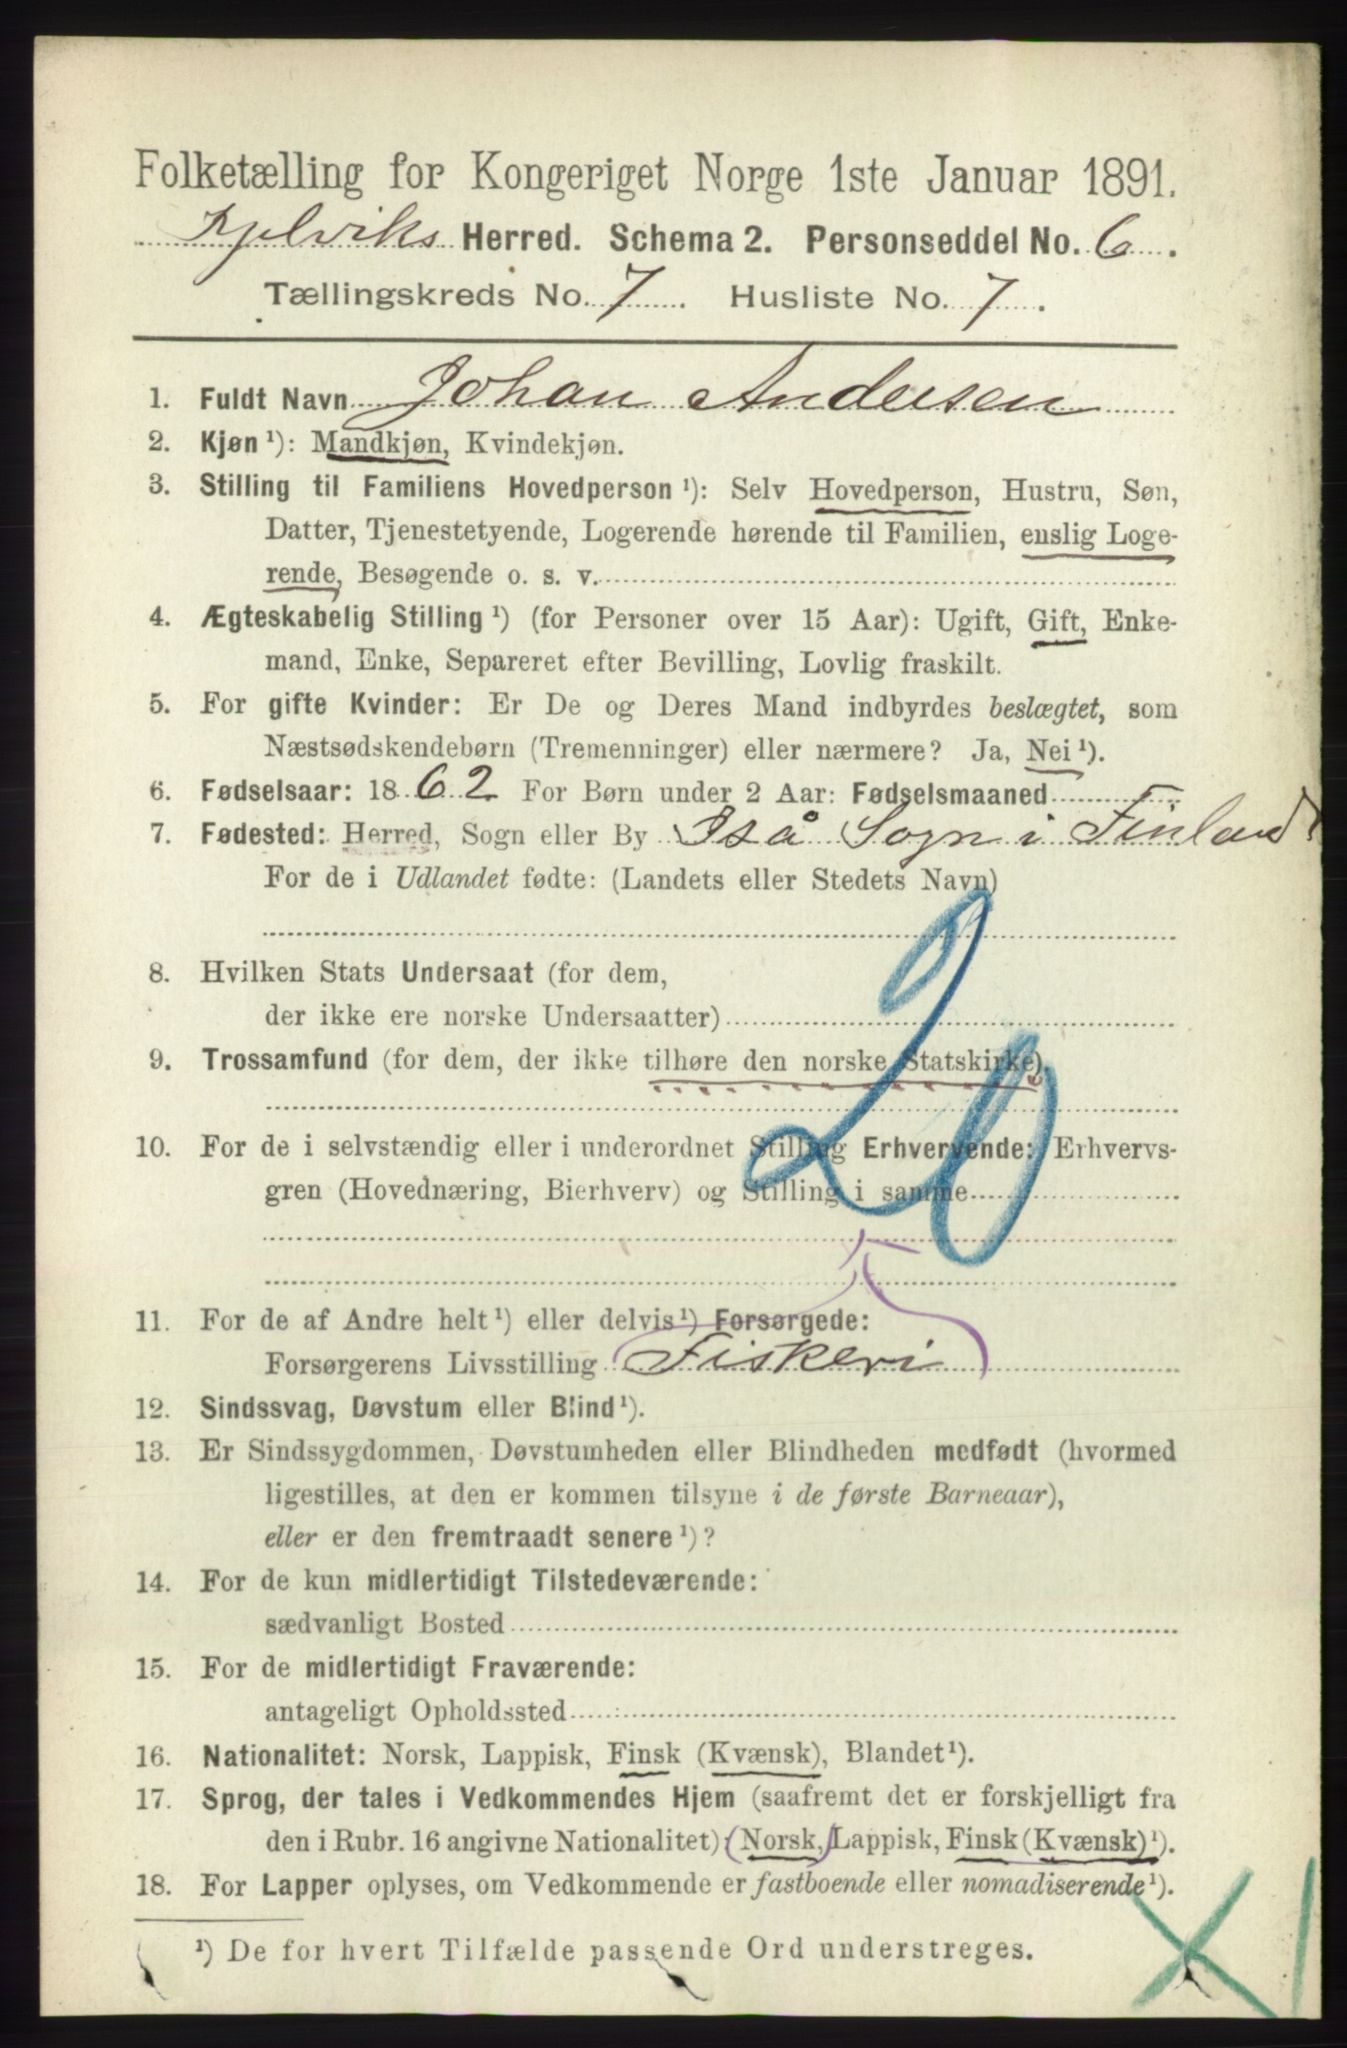 Folketælling for Kongeriget Norge 1ste Januar 1891.
Kjelviks Herred. Schema 2. Personseddel No. 6.
Tællingskreds No. 7. Husliste No. 7.
1. Fuldt Navn Johan Andersen
2. Kjøn ¹): Mandkjøn, Kvindekjøn.
3. Stilling til Familiens Hovedperson ¹): Selv Hovedperson, Hustru, Søn,
Datter, Tjenestetyende, Logerende hørende til Familien, enslig Loge-
rende, Besøgende o. s. v.
4. Ægteskabelig Stilling ¹) (for Personer over 15 Aar): Ugift, Gift, Enke-
mand, Enke, Separeret efter Bevilling, Lovlig fraskilt.
5. For gifte Kvinder: Er De og Deres Mand indbyrdes beslægtet, som
Næstsødskendebørn (Tremenninger) eller nærmere? Ja, Nei ¹).
6. Fødselsaar: 1862 For Børn under 2 Aar: Fødselsmaaned
7. Fødested: Herred, Sogn eller By Iså Sogn i Finland
For de i Udlandet fødte: (Landets eller Stedets Navn)
8. Hvilken Stats Undersaat (for dem,
der ikke ere norske Undersaatter)
9. Trossamfund (for dem, der ikke tilhøre den norske Statskirke).
20
10. For de i selvstændig eller i underordnet Stilling Erhvervende: Erhvervs-
gren (Hovednæring, Bierhverv) og Stilling i samme
11. For de af Andre helt ¹) eller delvis ¹) Forsørgede:
Forsørgerens Livsstilling (Fiskeri)
12. Sindssvag, Døvstum eller Blind ¹).
13. Er Sindssygdommen, Døvstumheden eller Blindheden medfødt (hvormed
ligestilles, at den er kommen tilsyne i de første Barneaar),
eller er den fremtraadt senere ¹)?
14. For de kun midlertidigt Tilstedeværende:
sædvanligt Bosted
15. For de midlertidigt Fraværende:
antageligt Opholdssted
16. Nationalitet: Norsk, Lappisk, Finsk (Kvænsk), Blandet ¹).
17. Sprog, der tales i Vedkommendes Hjem (saafremt det er forskjelligt fra
den i Rubr. 16 angivne Nationalitet): (Norsk,) Lappisk, Finsk (Kvænsk) ¹).
18. For Lapper oplyses, om Vedkommende er fastboende eller nomadiserende ¹).
¹) De for hvert Tilfælde passende Ord understreges.